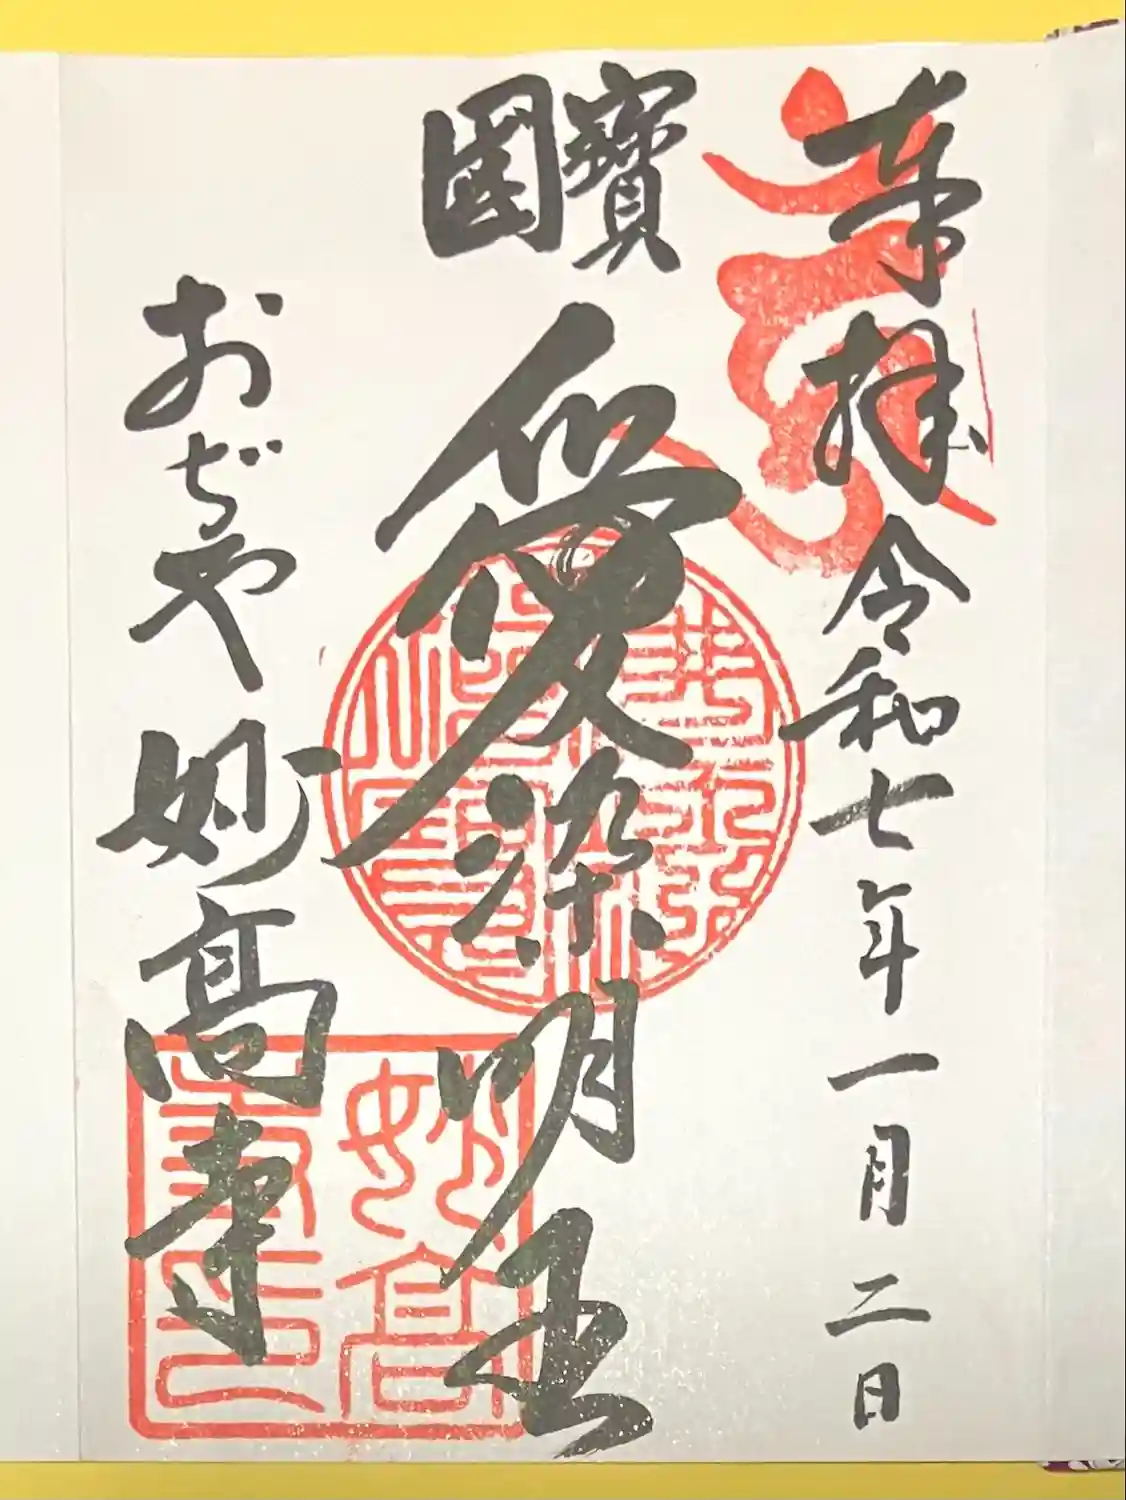 奉拝 令和七年一月二日
國寳
愛染明王
おぢや 妙高寺